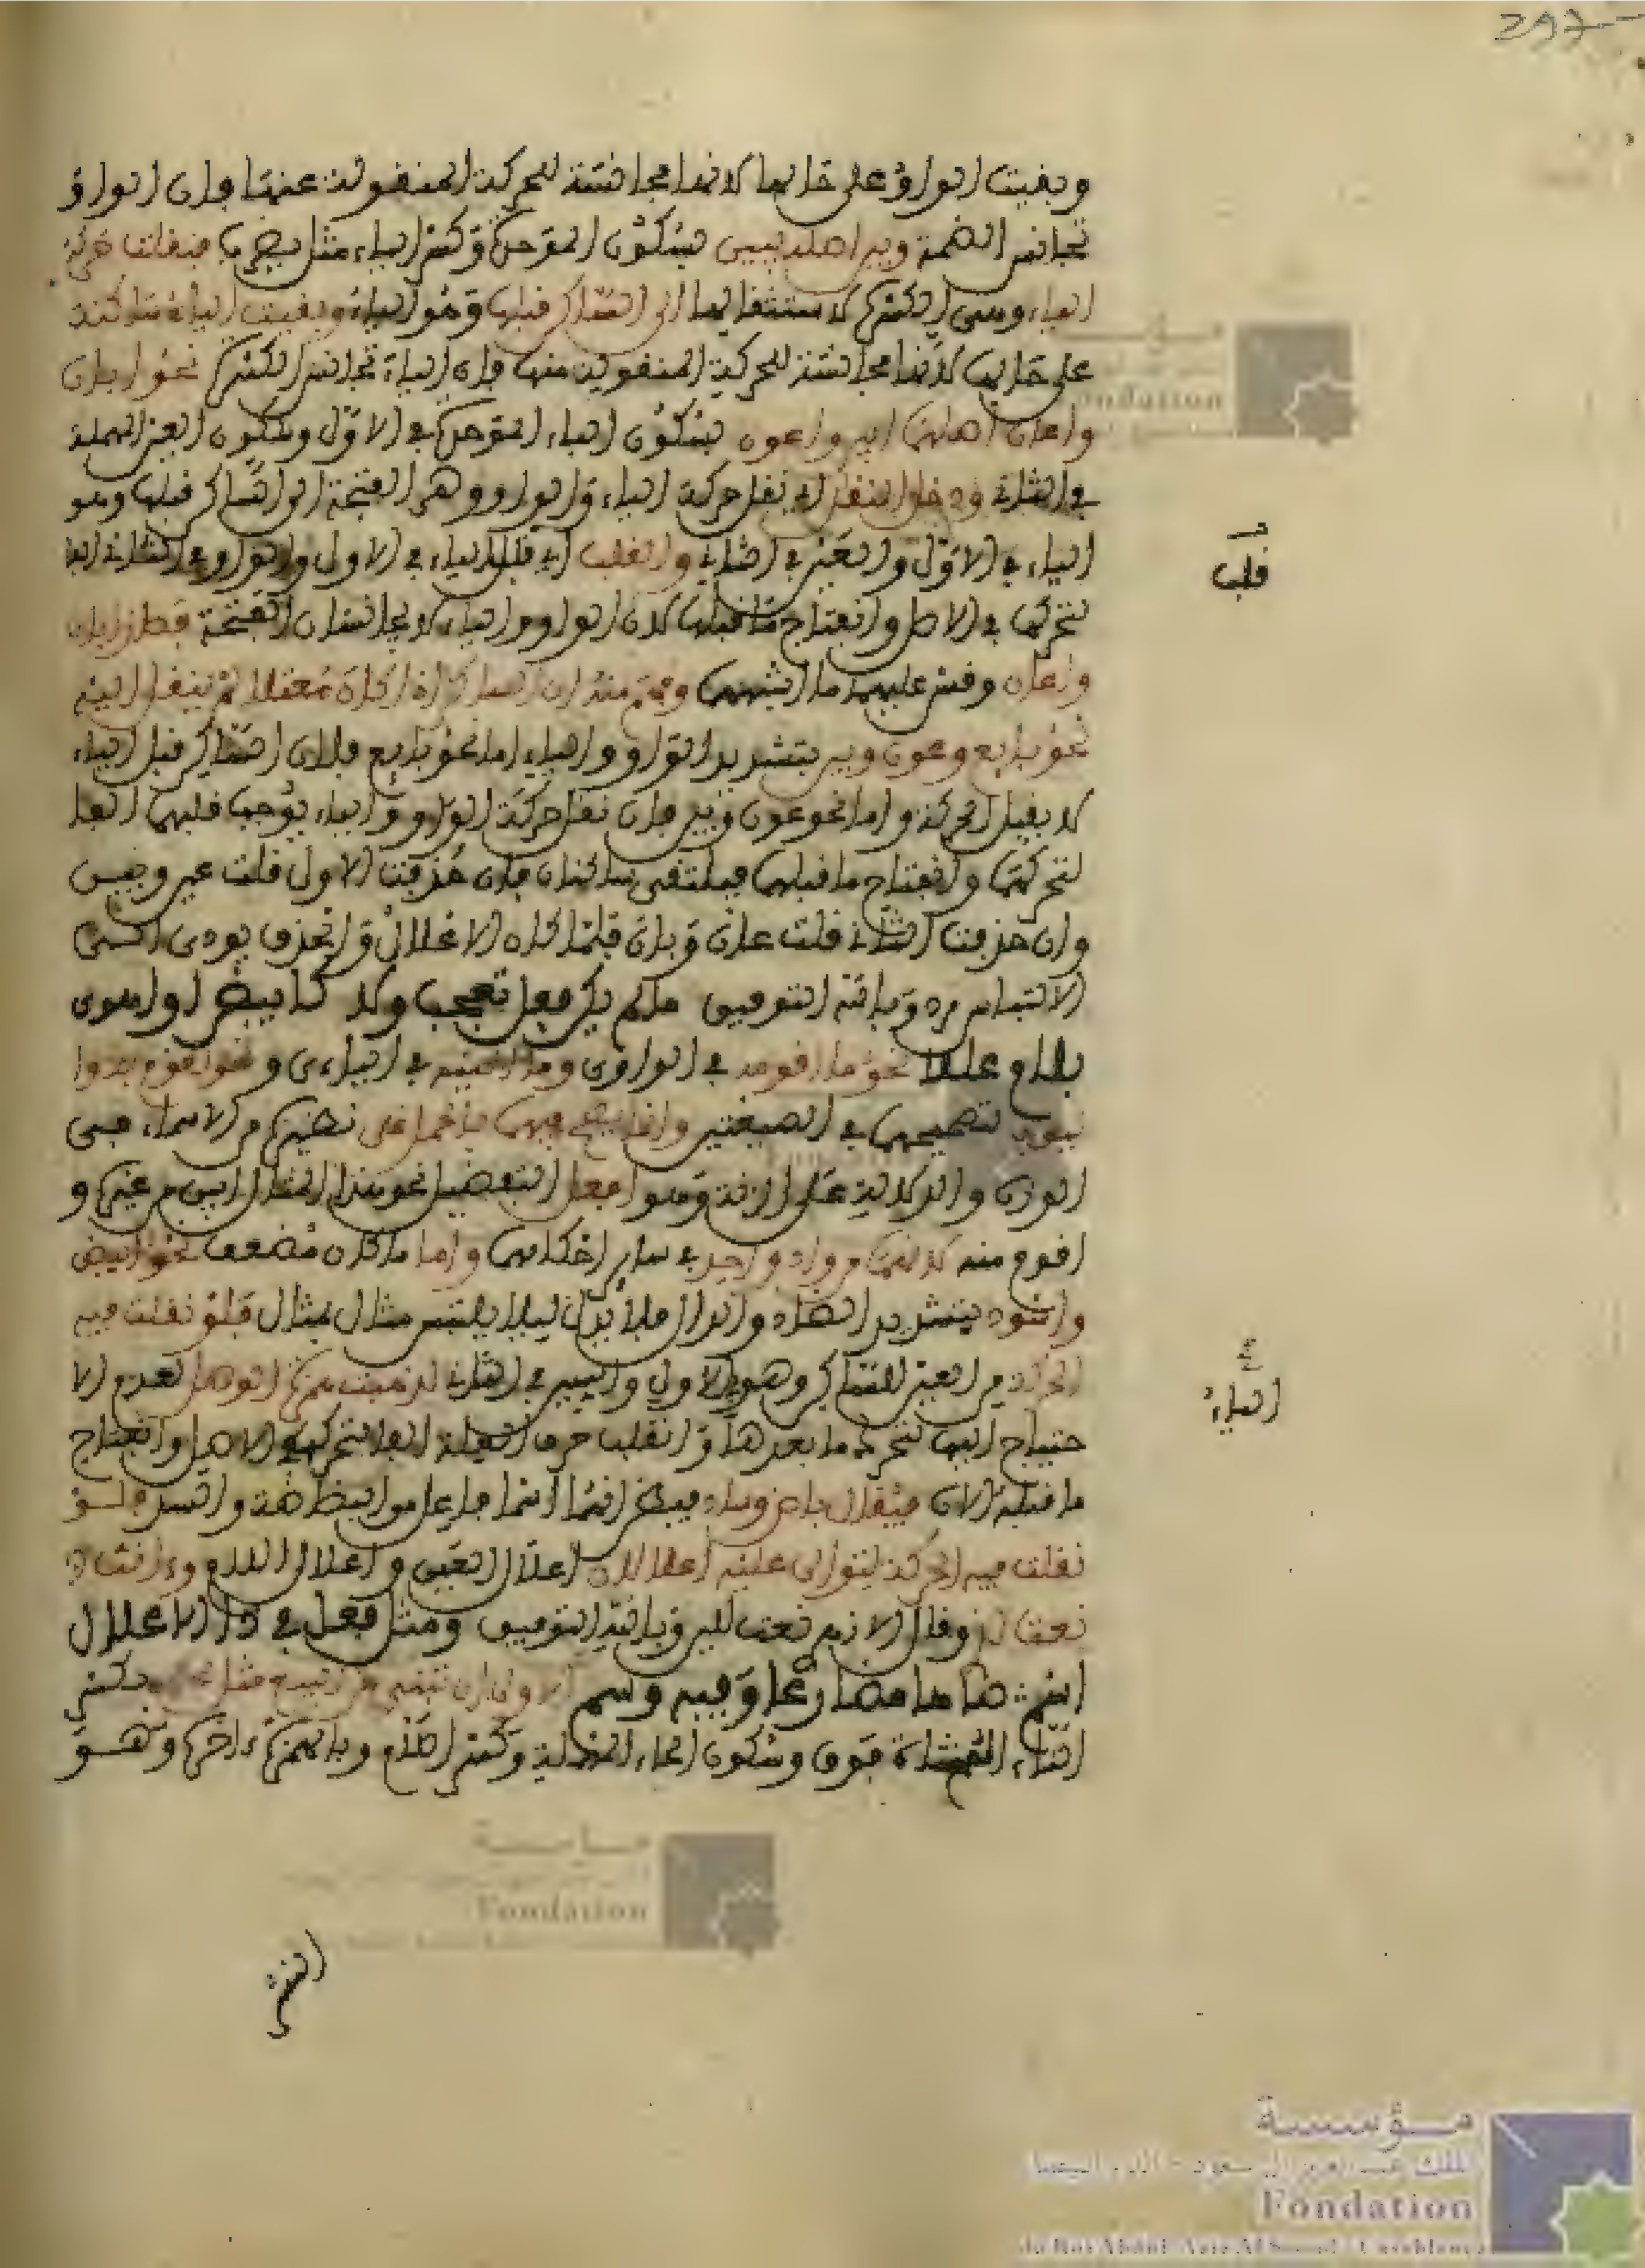 297
وبقيت الواو على حالها لانها مجانسة للحركة المنقولة عنها فان الواو
تجانس الضمة ويبين اصله يبين بسكون الموحدة وكسر الياء مثل يضرب فنقلت حركة
الياء وهي الكسرة لاستثقالها الى الساكن قبلها وهو الباء وبقيت الياء ساكنة
على حالها لانها مجانسة للحركة المنقولة منها فان الياء تجانس الكسرة نحو ابان
واعان اصلهما ابين واعون بسكون الباء الموحدة في الاول وسكون العين المهملة
في الثاني ودخل النقل اي نقل حركة الياء والواو وهي الفتحة الى الساكن قبلها وهو
الباء في الاول والعين في الثاني والقلب اي قلب الياء في الاول والواو في الثاني الفا
قلب
لتحركها في الاصل وانفتاح ما قبلها لان الواو والياء لا يجانسان الفتحة فصار ابان
واعان وقس عليهما ما اشبههما وفهم منه ان الساكن اذا كان معتلا لم ينقل اليه
نحو بايع وعون وبين بتشديد الواو والياء اما نحو بايع فلان الساكن قبل الياء
لا يقبل الحركة واما نحو عون وبين فان نقل حركة الواو والياء يوجب قلبهما الفا
لتحركهما وانفتاح ما قبلهما فيلتقي ساكنان فان حذفت الاول قلت عين وبين
وان حذفت الثاني قلت عان وبان فلما كان الاعلال والحذف يودي الى
الالتباس ترك وبالله التوفيق ما لم يكن فعل تعجب ولا كابيض او اهوى
بلام عللا نحو ما اقومه في الواوي وما ابينه في اليائي ونحو اقوم به وا
بين به تصحيحهما في الصيغتين وانما صح فيهما حملا على نظيره من الاسماء في
الوزن والدلالة على المزية وهو افعل التفضيل نحو هذا المثال ابين من غيره و
اقوم منه لانهما من واد واحد في ساير احكامهما واما ما كان مضعف نحو ابيض
واسود بتشديد الضاد والدال فلا يعل ليلا يلتبس مثال بمثال فلو نقلت فيه
الحركة من العين للساكن وهو الباء في الاول والسين في الثاني لذهبت همزة الوصل لعدم الا
الياء
حتياج اليها لتحرك ما بعدها وانقلب حرف العلة الفا لتحركه في الاصل وانفتاح
ما قبله الان فيقال باض وساد فيظن انهما اسما فاعل من البضاضة والسد ولو
نقلت فيه الحركة لتوالى عليه اعلالان اعلال العين واعلال اللام
نعت له وقال الازهري نعت للين وبالله التوفيق ومثل فعل في ذا الاعلال
اسم ضاها مضارعا وفيه وسم الاول ان تبني من البيع مثل تحلئ بكسر
التاء المثناة فوق وسكون الحاء المهملة وكسر اللام وبالهمزة اخره وهو
القشر
مؤسسة
الملك عبد العزيز آل سعود - الدار البيضاء
Fondation
du Roi Abdul-Aziz Al Saoud - Casablanca